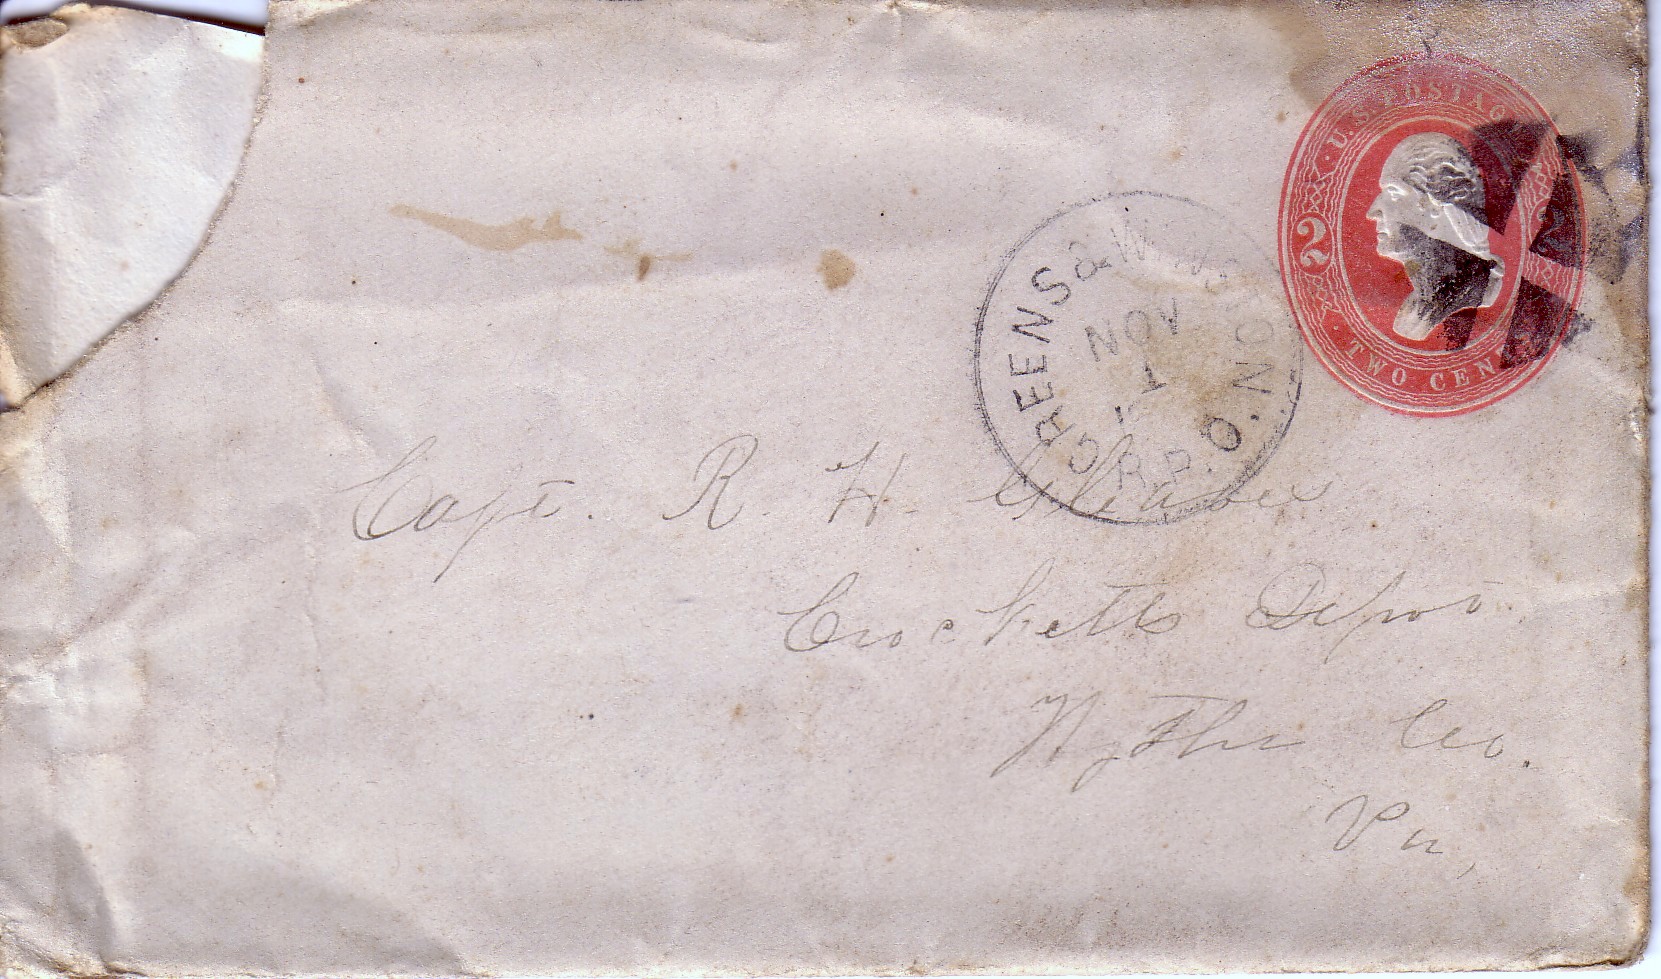 U.S. POSTAG
2
TWO CEN
GREENS & WINS
NOV
1
R.P.O. NO
Capt. R. H. Gleaves
Crocketts Depot
Wythe Co.
Va,